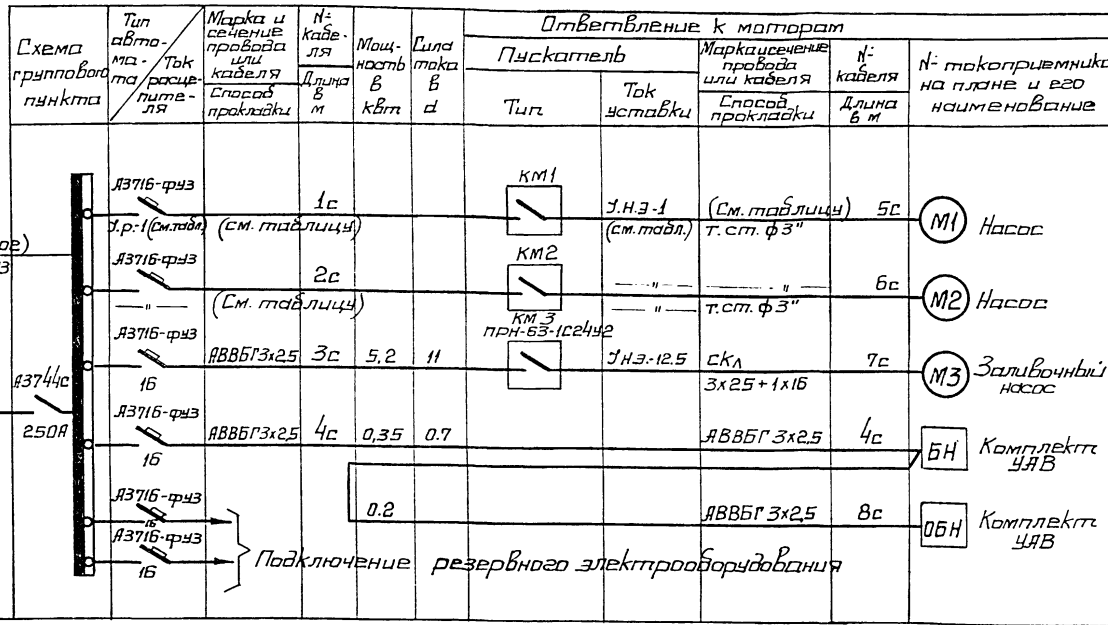 Схема
группового
пункта
Тип
авто-
ма-
та
Ток
расце-
пите-
ля
Марка и
сечение
провода
или
кабеля
Способ
прокладки
№
кабе-
ля
Длина
в
м
Мощ-
ность
в
квт
Сила
тока
в
а
Ответвление к моторам
Пускатель
Тип
Ток
уставки
Марка и сечение
провода
или кабеля
Способ
прокладки
№
кабеля
Длина
в м
№ токоприемника
на плане и его
наименование
А3716-фуз
1с
КМ1
У.н.э-1
(См. таблицу)
5с
М1
Насос
У.р.-1 (См.табл)
(см. таблицу)
(см. табл.)
т.ст. ф 3"
А3716-фуз
2с
КМ2
— " —
— " —
6с
М2
Насос
— " —
(См. таблицу)
— " —
т.ст. ф 3"
КМ 3
ПРН-63-1С24У2
А3716-фуз
АВВБГ 3х2,5
3с
5,2
11
У.н.э.-12.5
СКЛ
7с
М3
Заливочный
насос
16
3х2.5 + 1х16
А3744с
250А
А3716-фуз
АВВБГ 3х2,5
4с
0,35
0.7
АВВБГ 3х2,5
4с
БН
Комплект
УАВ
16
А3716-фуз
0.2
АВВБГ 3х2,5
8с
ОБН
Комплект
УАВ
16
А3716-фуз
16
Подключение резервного электрооборудования